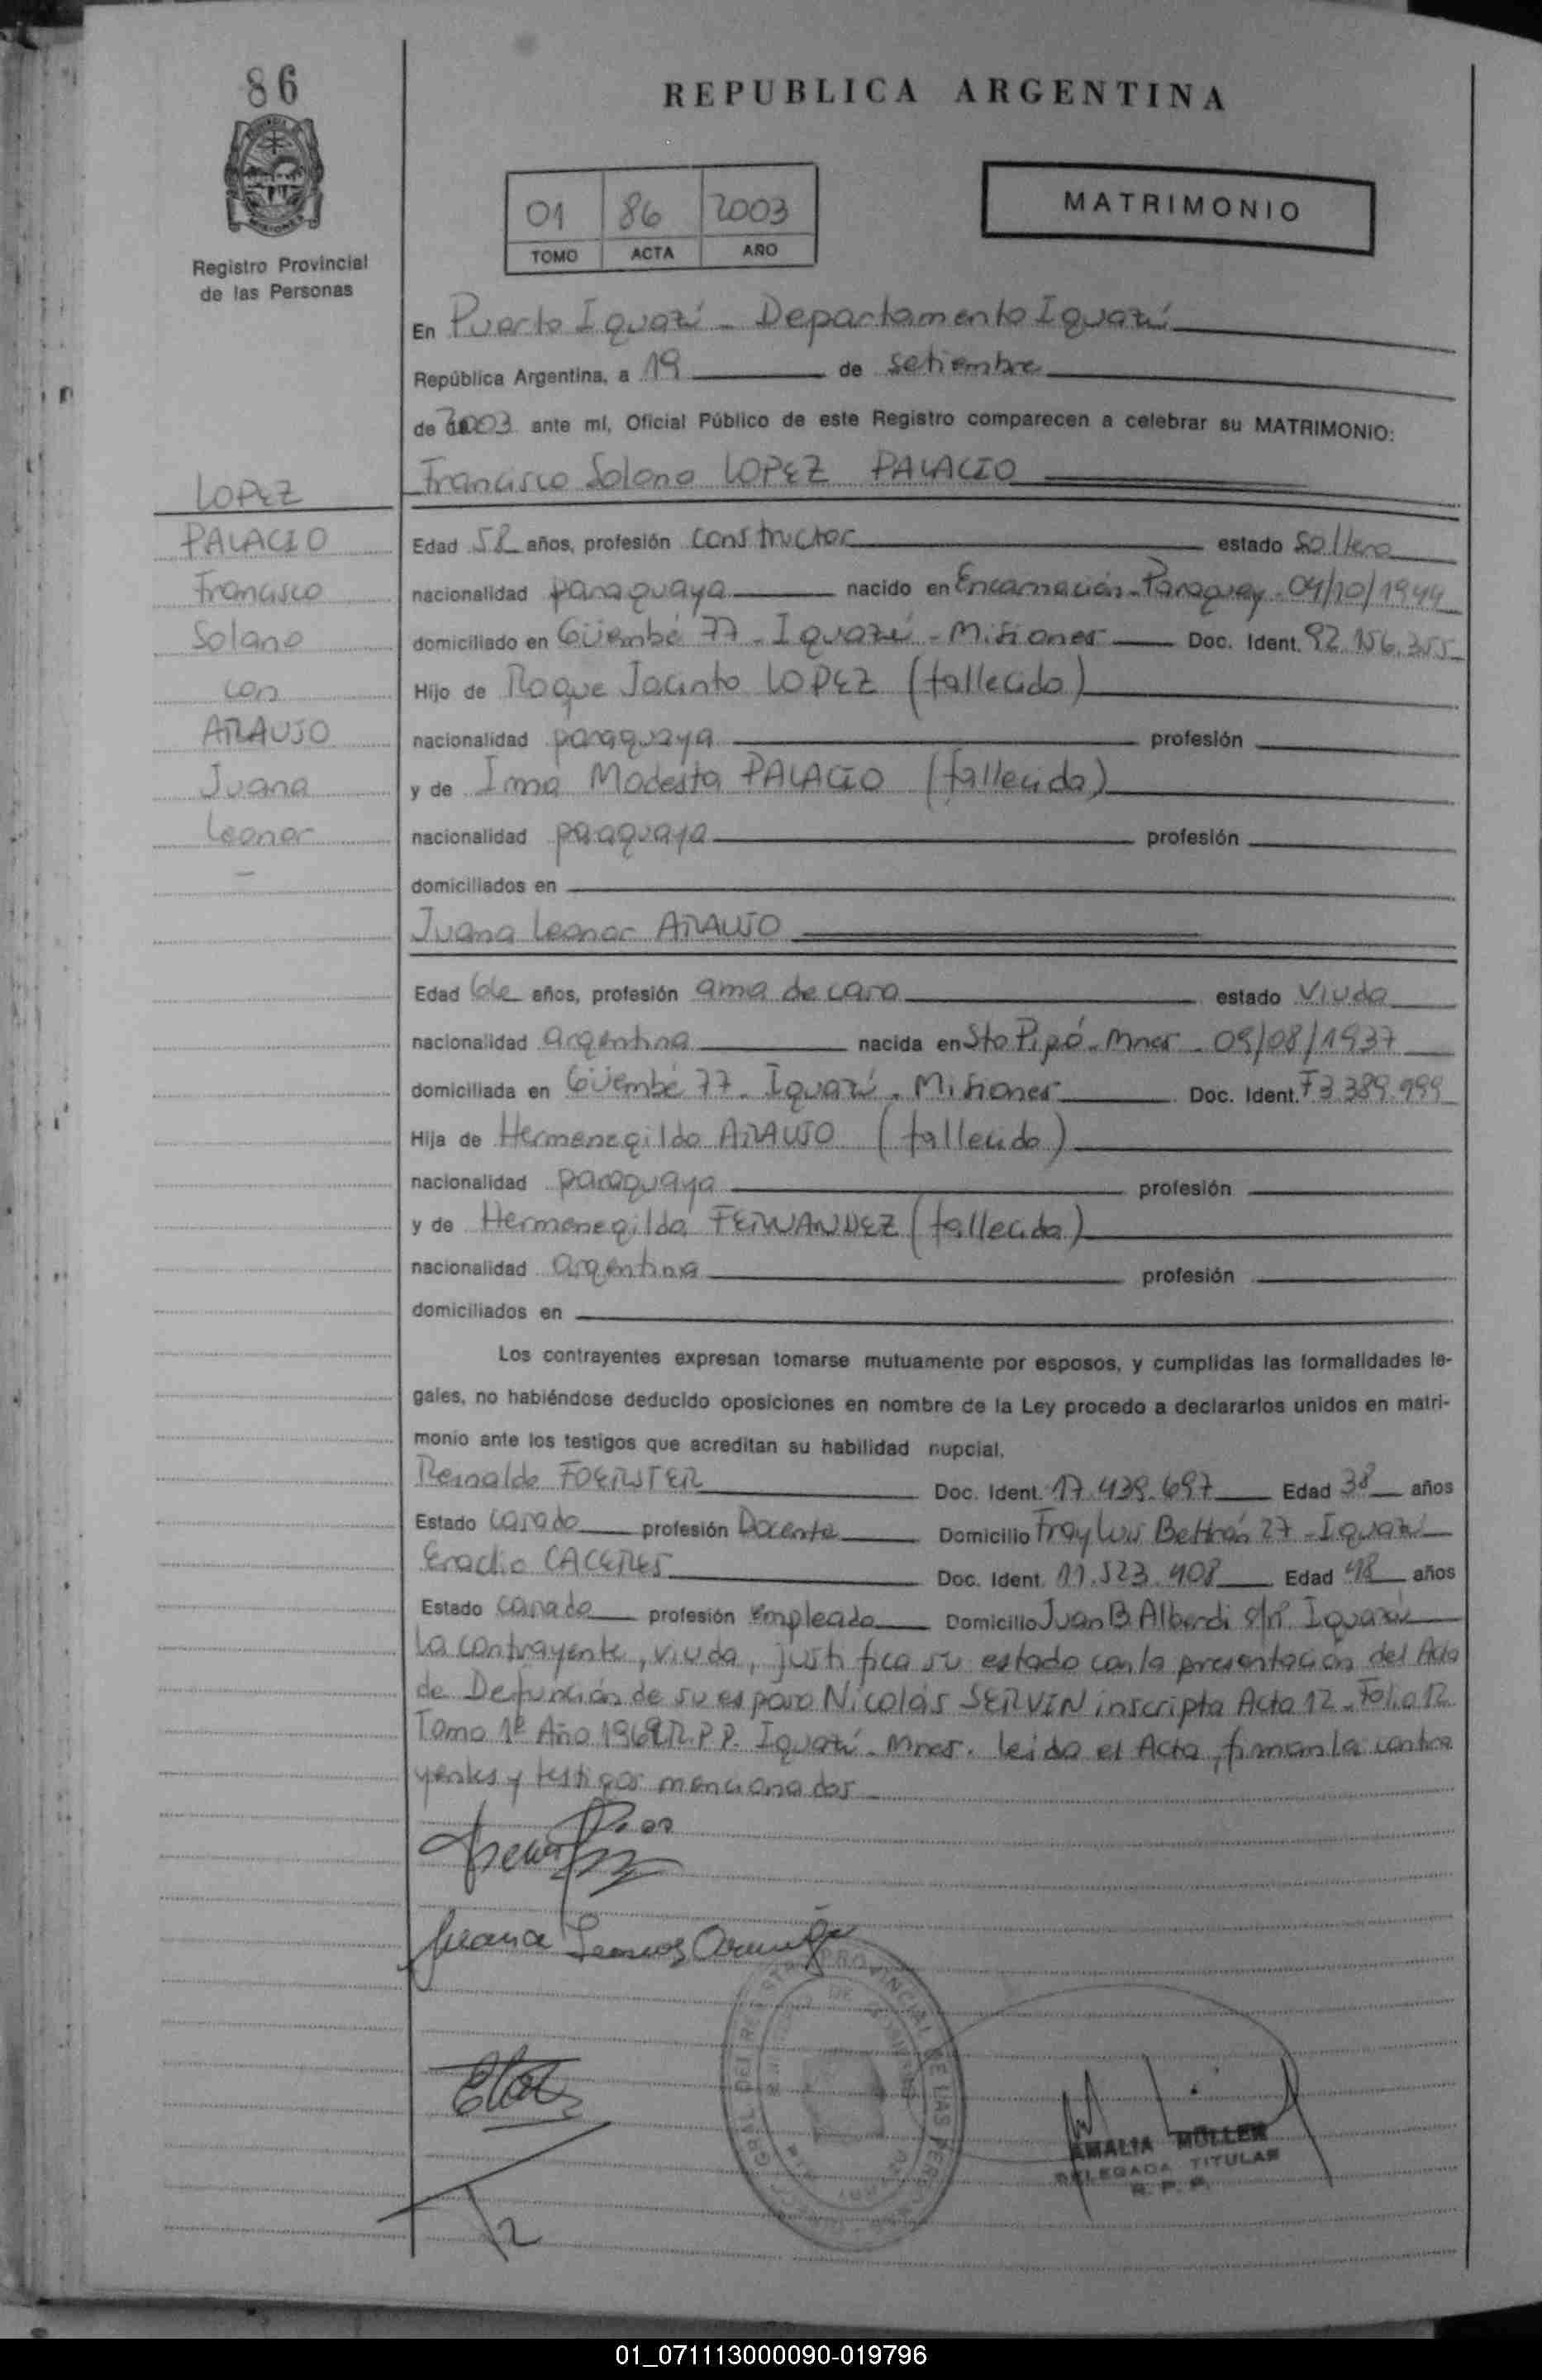 86
REPUBLICA ARGENTINA
01 86 2003
TOMO ACTA AÑO
MATRIMONIO
Registro Provincial
de las Personas
En Puerto Iguazú - Departamento Iguazú
República Argentina, a 19 de setiembre
de 2003 ante mí, Oficial Público de este Registro comparecen a celebrar su MATRIMONIO:
LOPEZ
PALACIO
Francisco
Solano
con
ARAUJO
Juana
Leonor
Francisco Solano LOPEZ PALACIO
Edad 58 años, profesión constructor estado soltero
nacionalidad paraguaya nacido en Encarnación - Paraguay - 04/10/1944
domiciliado en Güembé 77 - Iguazú - Misiones Doc. Ident. 92.156.355
Hijo de Roque Jacinto LOPEZ (fallecido)
nacionalidad paraguaya profesión
y de Irma Modesta PALACIO (fallecida)
nacionalidad paraguaya profesión
domiciliados en
Juana Leonor ARAUJO
Edad años, profesión ama de casa estado viuda
nacionalidad argentina nacida en Sto Pipó - Mnes - 09/08/1937
domiciliada en Güembé 77 - Iguazú - Misiones Doc. Ident. F3.389.999
Hija de Hermenegildo ARAUJO (fallecido)
nacionalidad paraguaya profesión
y de Hermenegilda FERNANDEZ (fallecida)
nacionalidad argentina profesión
domiciliados en
Los contrayentes expresan tomarse mutuamente por esposos, y cumplidas las formalidades le-
gales, no habiéndose deducido oposiciones en nombre de la Ley procedo a declararlos unidos en matri-
monio ante los testigos que acreditan su habilidad nupcial.
Reinaldo FOERSTER Doc. Ident. 17.439.697 Edad 38 años
Estado casado profesión Docente Domicilio Fray Luis Beltrán 27 - Iguazú
Eradio CACERES Doc. Ident. 11.523.408 Edad 48 años
Estado casado profesión empleado Domicilio Juan B Alberdi s/nº Iguazú
La contrayente, viuda, justifica su estado con la presentación del Acta
de Defunción de su esposo Nicolás SERVIN inscripta Acta 12 - Folio 12
Tomo 1º Año R.P.P. Iguazú - Mnes. Leida el Acta, firman la contra
yentes y testigos mencionados
Juana Leonor Araujo
AMALIA MÜLLER
DELEGADA TITULAR
R. P. P.
01_071113000090-019796